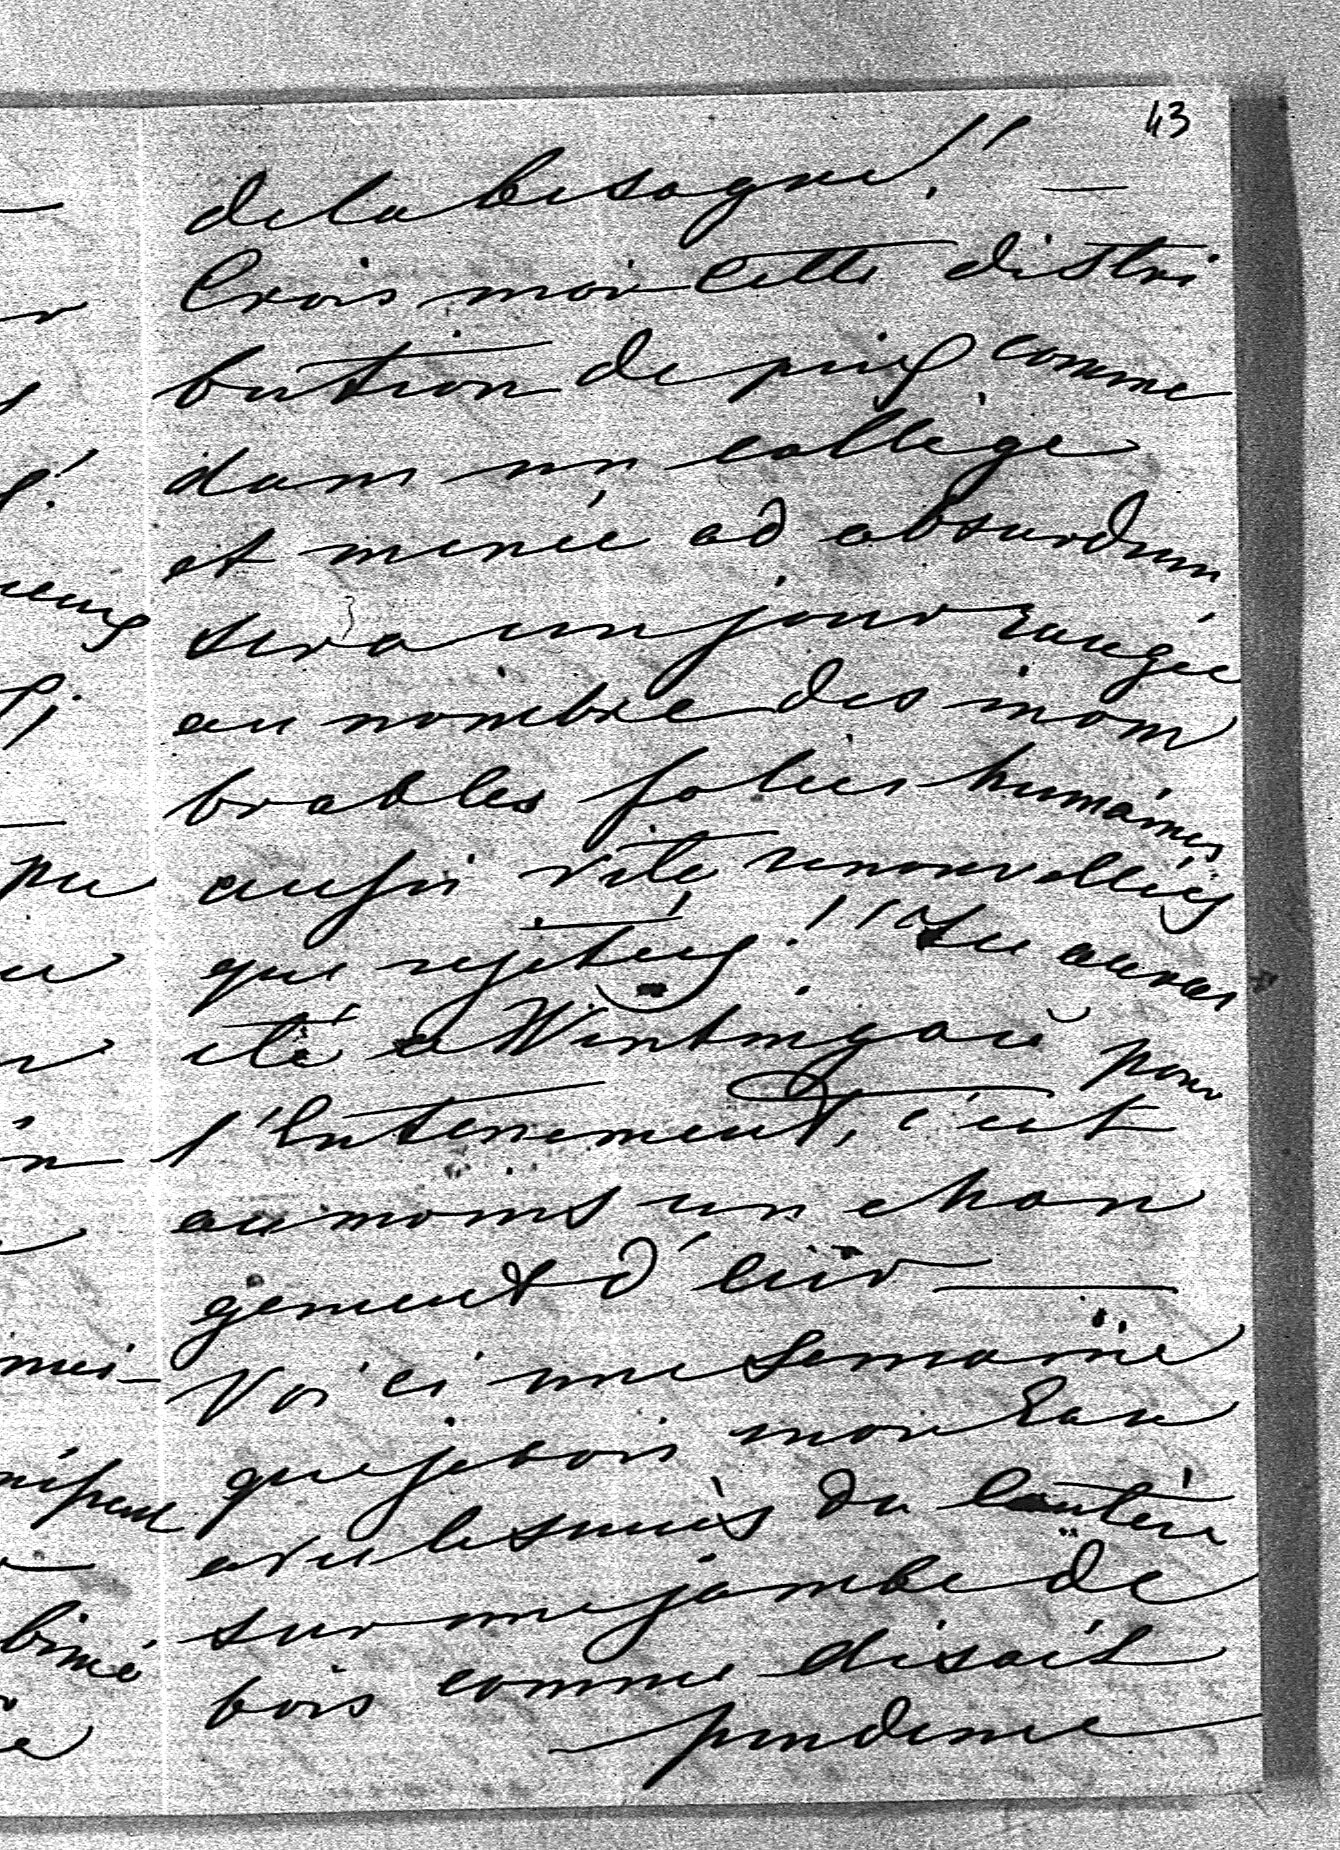 43
de la besogne!! —
Crois moi cette distri
bution de prix comme
dans un collège
et menée ad absurdum
sera un jour rangée
au nombre des inom
brables folies humaines
aussi vite renouvellées
que rejetées!! Tu auras
été a Wintingau pour
l'Enterrement, c'est
au moins un chan
gement d'air —
Voici une semaine
que je bois mon Eau
avec le succès du Cautère
sur une jambe de
bois comme disait
prudence
pu